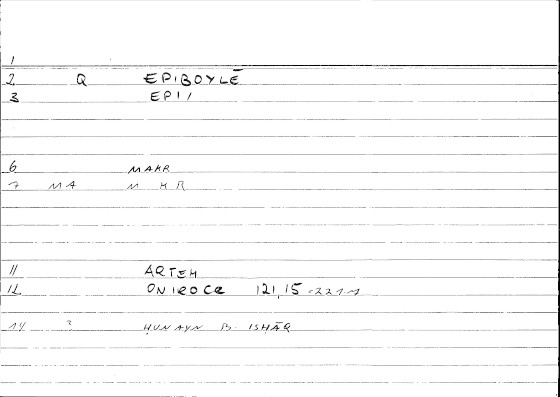 1
2 Q EPIBOYLĒ
3 EPI/
6 MAKR
7 MA M KR
11 ARTEM
12 ONIROCR 121,15
14 ḤUNAYN B. ISḤĀQ